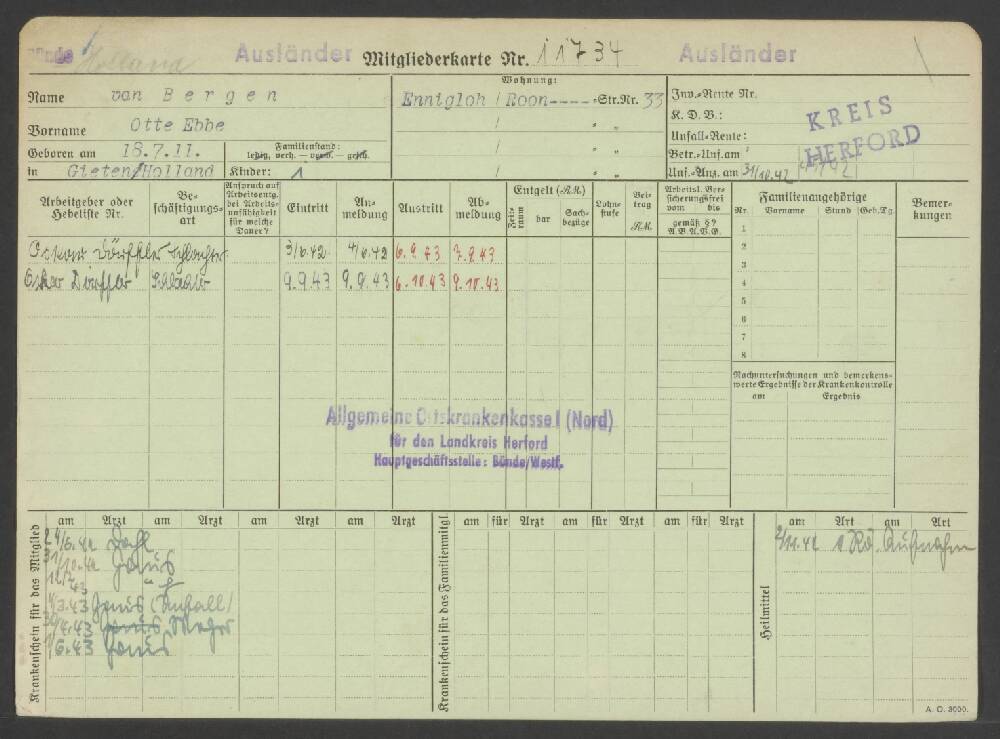 Holland Ausländer Mitgliederkarte Nr. 11734 Ausländer
Name van Bergen
Vorname Otte Ebbe
Geboren am 18.7.11.
in Gieten/Holland
Familienstand:
ledig, verh. — verw. — gesch.
Kinder: 1
Wohnung:
Ennigloh / Roon---- -Str.Nr. 33
/ " "
/ " "
/ " "
Inv.-Rente Nr.
K. D. B.:
Unfall-Rente:
Betr.-Unf. am
Unf.-Anz. am 31/10.42
KREIS
HERFORD
Arbeitgeber oder Hebeliste Nr.
Beschäftigungsart
Anspruch auf Arbeitsentg. bei Arbeitsunfähigkeit für welche Dauer?
Eintritt
Anmeldung
Austritt
Abmeldung
Entgelt (RM.)
Zeitraum
bar
Sachbezüge
Lohnstufe
Beitrag RM.
Arbeitsl. Versicherungsfrei
vom bis
gemäß §?
A.V.A.V.G.
Familienangehörige
Nr. Vorname Stand Geb.Tg.
1
2
3
4
5
6
7
8
Bemerkungen
3/6.42 4/6.42 6.9.43 7.9.43
Oskar 9.9.43 9.9.43 6.10.43 9.10.43
Nachuntersuchungen und bemerkenswerte Ergebnisse der Krankenkontrolle
am Ergebnis
Allgemeine Ortskrankenkasse I (Nord)
für den Landkreis Herford
Hauptgeschäftsstelle: Bünde/Westf.
Krankenschein für das Mitglied
am Arzt am Arzt am Arzt am Arzt
24/6.42
31/10.42
43
3.43 (Unfall)
4.43
6.43
Krankenschein für das Familienmitgl.
am für Arzt am für Arzt am für Arzt
Heilmittel
am Art am Art
2/11.42 1 Rö. Aufnahm
A. O. 3000.